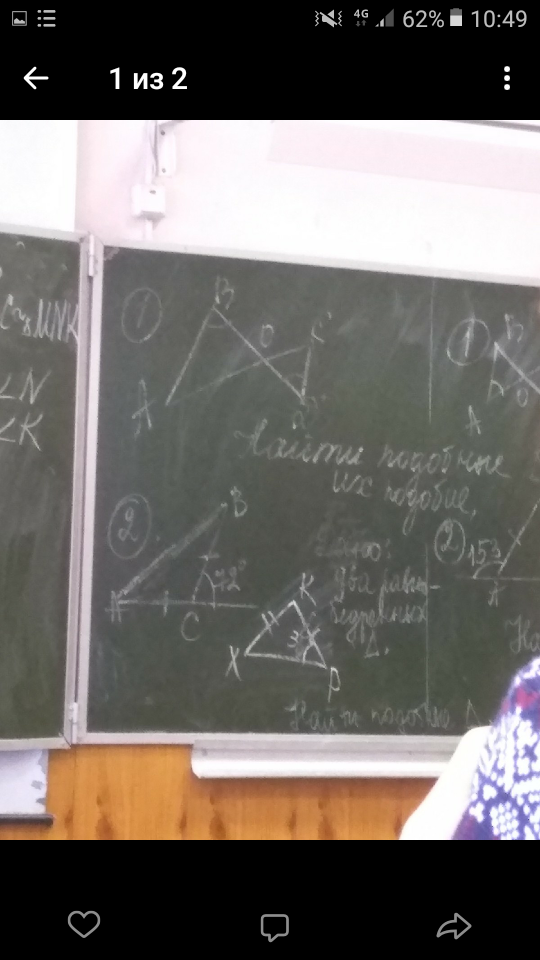 4G 62% 10:49
1 из 2
MNK
∠N
∠K
1
B
O
C
A
Найти подобные
их подобие,
2
B
A
C
72°
K
X
P
Дано:
два равно-
бедренных
Δ.
Найти подобие Δ
1
B
A
O
2
153
A